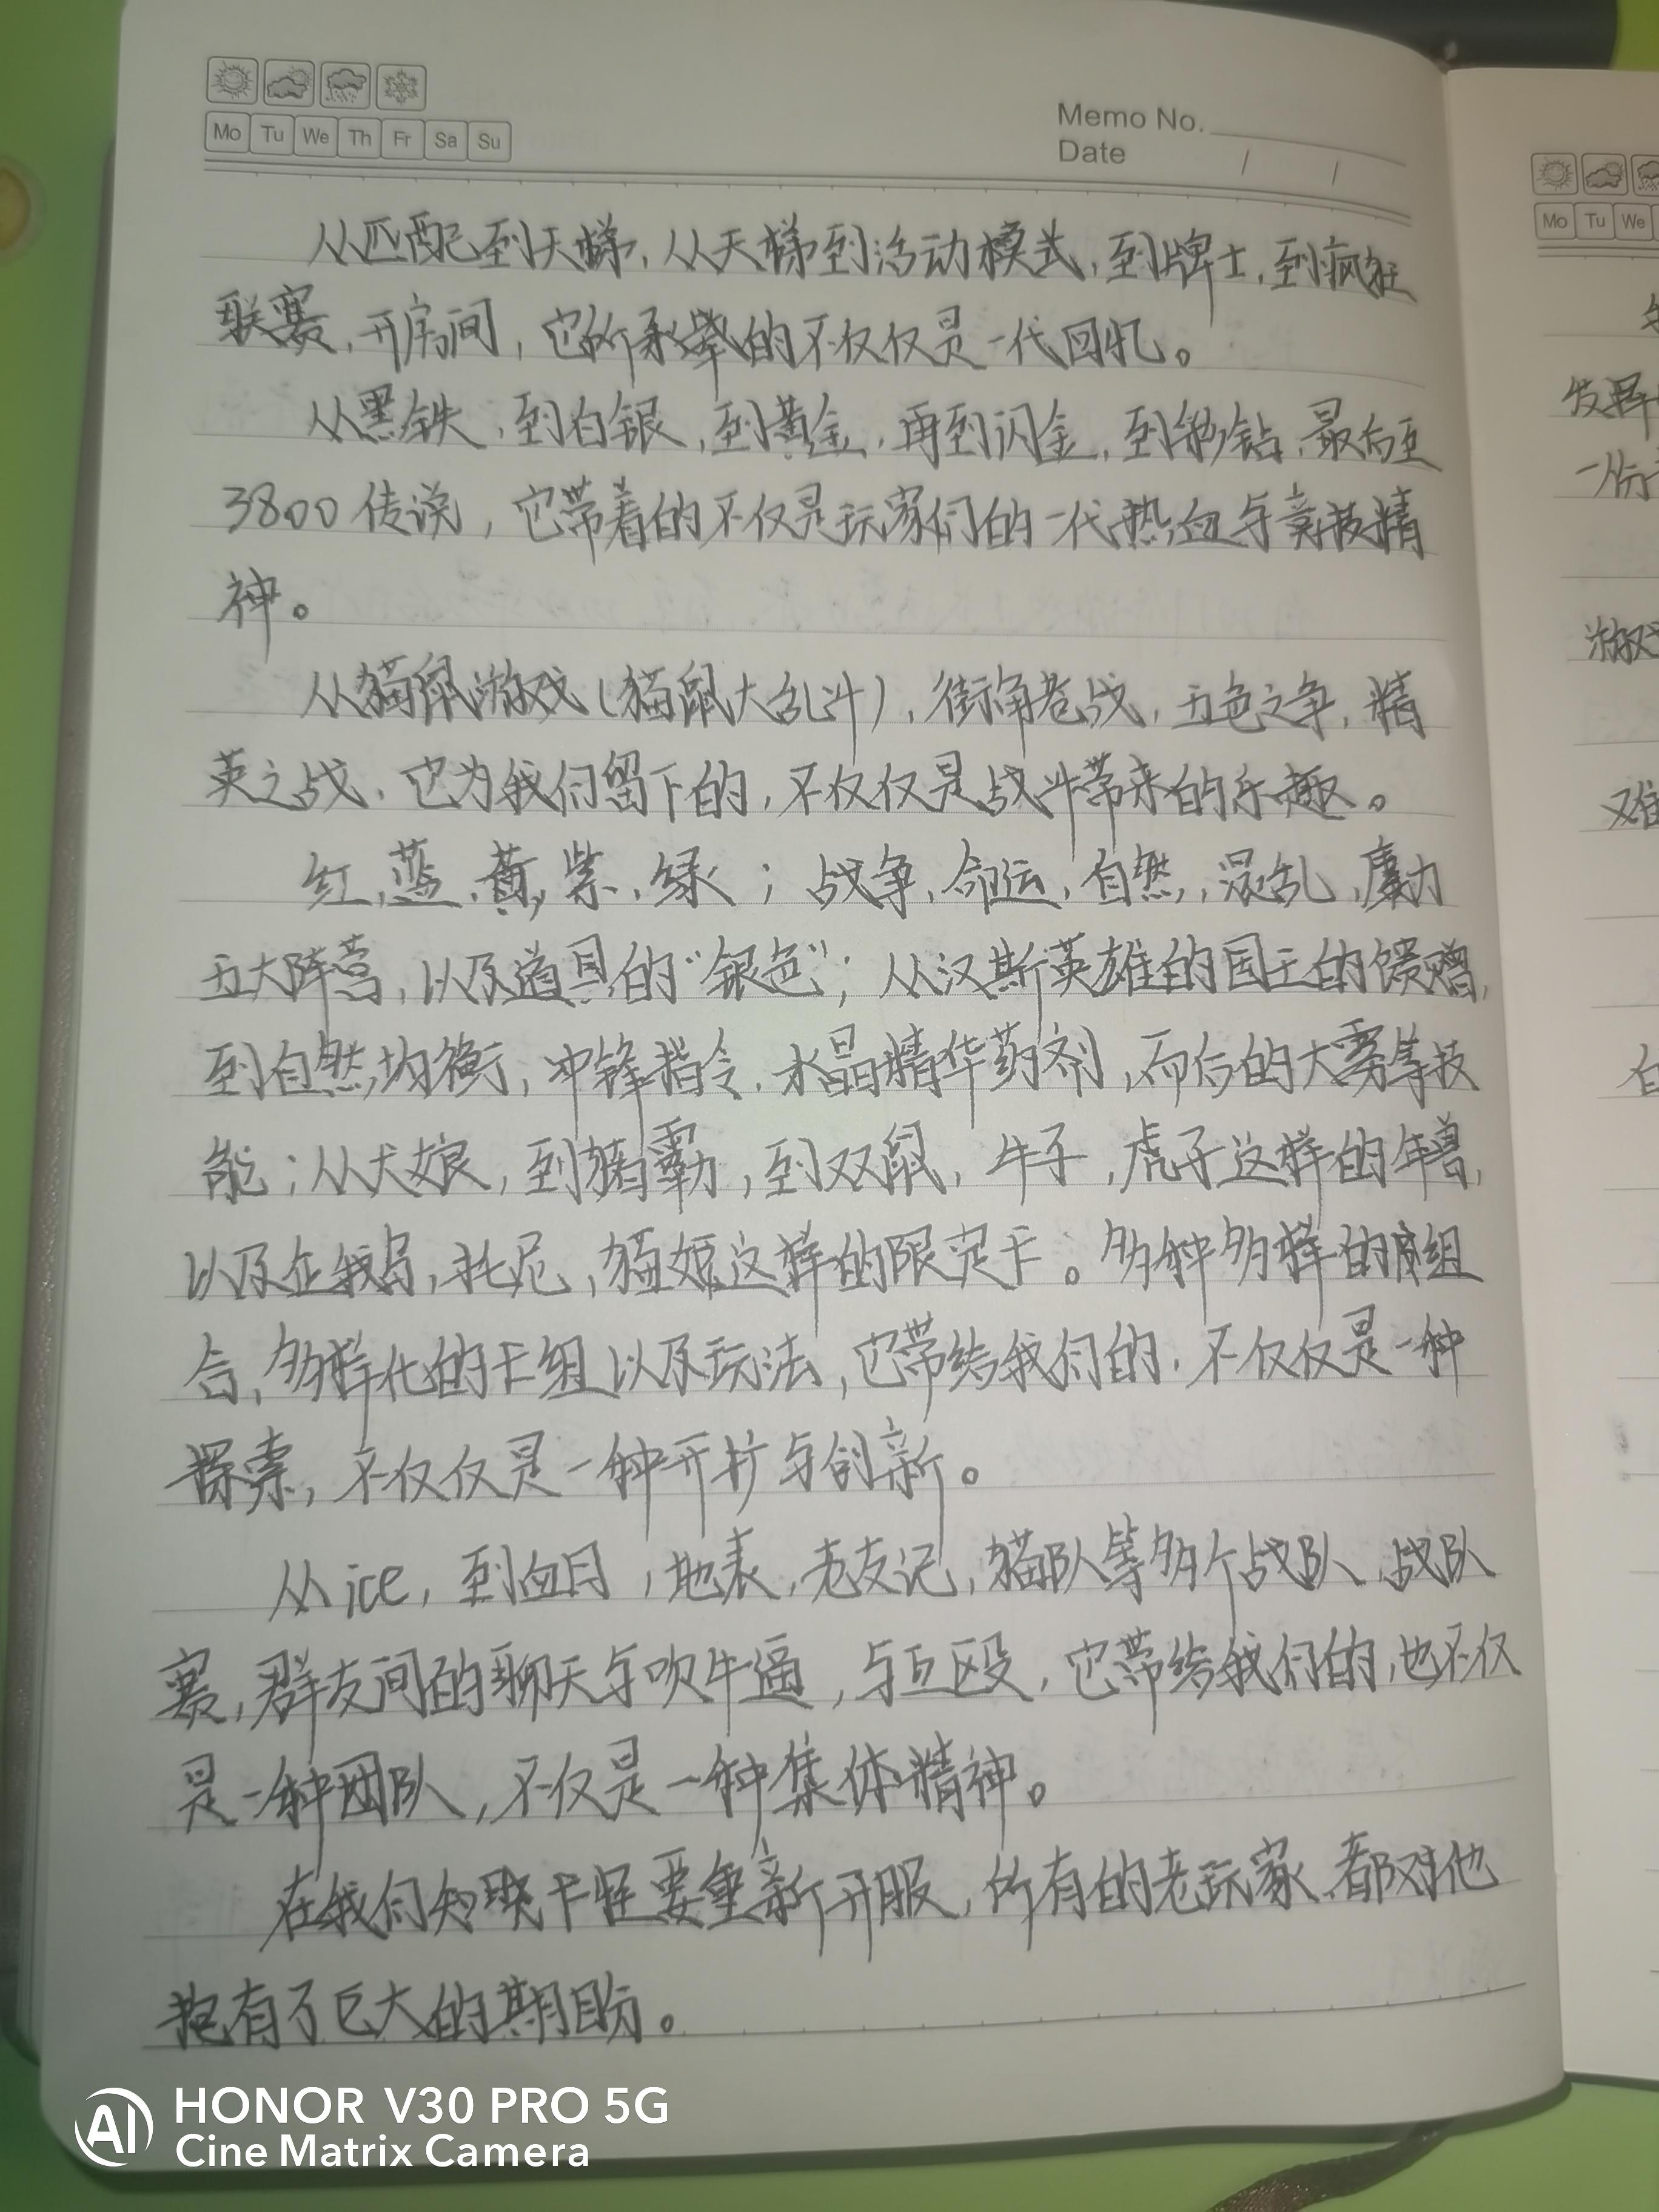 Mo Tu We Th Fr Sa Su
Memo No.
Date / /
从匹配到天梯，从天梯到活动模式，到牌士，到疯狂
联赛，开房间，它所承载的不仅仅是一代回忆。
从黑铁，到白银，到黄金，再到闪金，到钻，最后至
3800传说，它带着的不仅是玩家们的一代热血与竞技精
神。
从猫鼠游戏（猫鼠大乱斗），街角巷战，五色之争，精
英之战，它为我们留下的，不仅仅是战斗带来的乐趣。
红，蓝，黄，紫，绿；战争，命运，自然，混乱，魔力
五大阵营，以及道具的“银色”；从汉斯英雄的国王的馈赠，
到自然均衡，冲锋指令，水晶精华药剂，而后的大雾等技
能；从犬娘，到猪霸，到双鼠，牛子，虎子这样的年兽，
以及企鹅岛，托尼，猫姬这样的限定卡。多种多样的组
合，多样化的卡组以及玩法，它带给我们的，不仅仅是一种
探索，不仅仅是一种开扩与创新。
从ice，到血月，地表，老友记，猫队等多个战队，战队
赛，群友间的聊天与吹牛逼，与互殴，它带给我们的，也不仅
是一种团队，不仅是一种集体精神。
在我们知晓卡怪要重新开服，所有的老玩家，都对他
抱有了巨大的期盼。
Mo Tu We
发
一份
游戏
难
AI HONOR V30 PRO 5G
Cine Matrix Camera